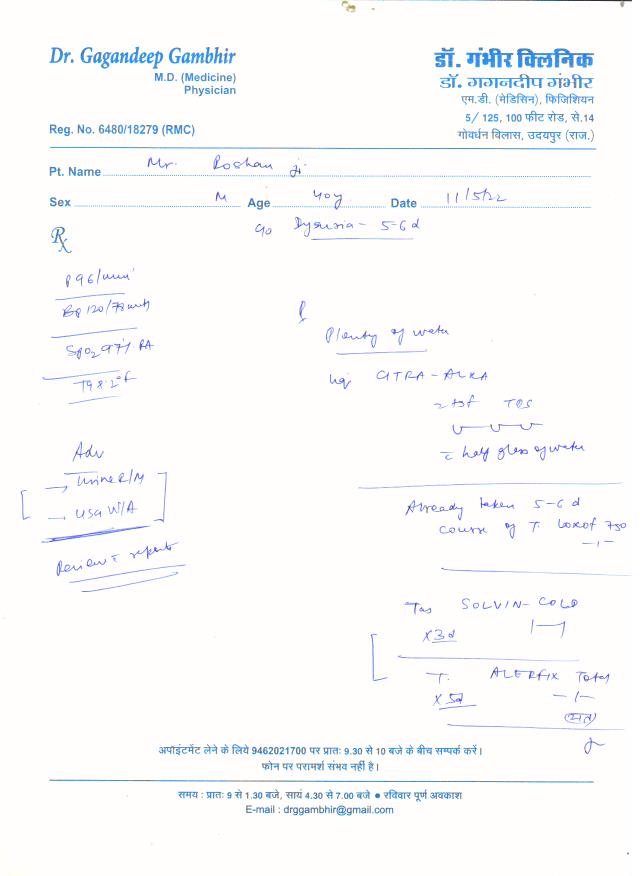 Dr. Gagandeep Gambhir
M.D. (Medicine)
Physician
Reg. No. 6480/18279 (RMC)
डॉ. गंभीर क्लिनिक
डॉ. गगनदीप गंभीर
एम.डी. (मेडिसिन), फिजिशियन
5/ 125, 100 फीट रोड, से.14
गोवर्धन विलास, उदयपुर (राज.)
Pt. Name Mr. Roshan ji
Sex M Age 40y Date 11/5/22
Rx
c/o Dysuria - 5-6 d
P 96/min
BP 120/78 mmHg
SpO2 97% RA
T 98.2°F
Adv
→ Urine R/M
→ USG W/A
Review c reports
R
Plenty of water
liq CITRA-ALKA
2 tsf TDS
c half glass of water
Already taken 5-6 d
course of T. Loxof 750
-1-
Tab SOLVIN-COLD
x 3d
T. ALERFIX Total
x 5d -1-
अपॉइंटमेंट लेने के लिये 9462021700 पर प्रातः 9.30 से 10 बजे के बीच सम्पर्क करें।
फोन पर परामर्श संभव नहीं है।
समय : प्रातः 9 से 1.30 बजे, सायं 4.30 से 7.00 बजे ● रविवार पूर्ण अवकाश
E-mail : drggambhir@gmail.com